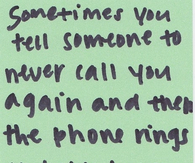 Sometimes you
tell someone to
never call you
again and then
the phone rings